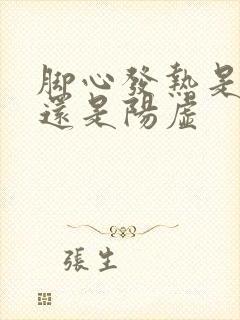 腳心發熱是
還是陽虛
張生